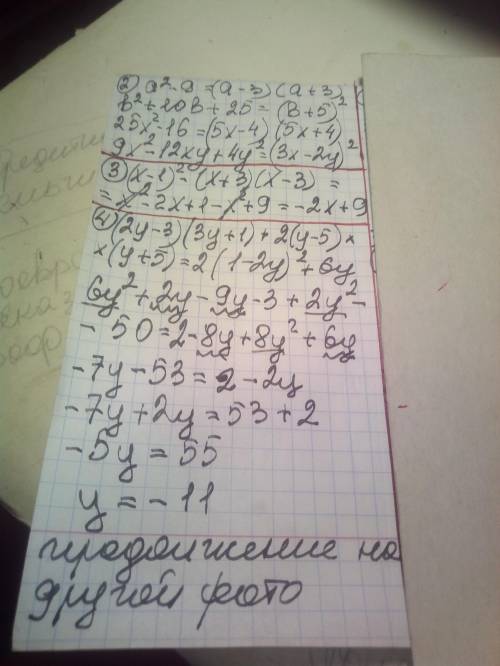 ② a² - 9 = (a - 3)(a + 3)
b² + 10b + 25 = (b + 5)²
25x² - 16 = (5x - 4)(5x + 4)
9x² - 12xy + 4y² = (3x - 2y)²
③ (x - 1)² - (x + 3)(x - 3) =
= x² - 2x + 1 - x² + 9 = -2x + 9
④ (2y - 3)(3y + 1) + 2(y - 5) ×
× (y + 5) = 2(1 - 2y)² + 6y
6y² + 2y - 9y - 3 + 2y² -
- 50 = 2 - 8y + 8y² + 6y
-7y - 53 = 2 - 2y
-7y + 2y = 53 + 2
-5y = 55
y = -11
продолжение на
другой фото